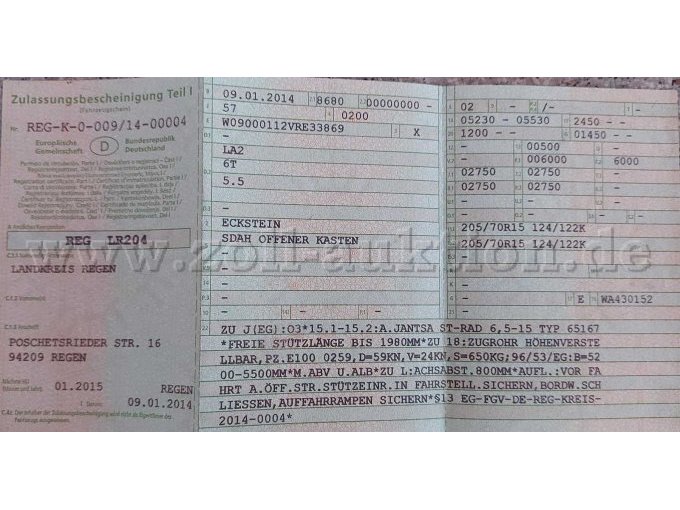 Zulassungsbescheinigung Teil I
(Fahrzeugschein)
Nr. REG-K-0-009/14-00004
Europäische Gemeinschaft
D
Bundesrepublik Deutschland
REG LR204
LANDKREIS REGEN
POSCHETSRIEDER STR. 16
94209 REGEN
01.2015 REGEN
09.01.2014
09.01.2014 8680 00000000 -
57 0200
W09000112VRE33869 X
-
LA2
6T
5.5
-
ECKSTEIN
SDAH OFFENER KASTEN
-
-
-
- - -
02 - -/-
05230 - 05530 2450 --
1200 -- 01450 --
- 00500 -
- 006000 6000
02750 02750 -
02750 02750 -
- - -
- - -
205/70R15 124/122K
205/70R15 124/122K
-
-
- E WA430152
ZU J(EG):O3*15.1-15.2:A.JANTSA ST-RAD 6,5-15 TYP 65167
*FREIE STÜTZLÄNGE BIS 1980MM*ZU 18:ZUGROHR HÖHENVERSTE
LLBAR,PZ.E100 0259,D=59KN,V=24KN,S=650KG;96/53/EG:B=52
00-5500MM*M.ABV U.ALB*ZU L:ACHSABST.800MM*AUFL.:VOR FA
HRT A.ÖFF.STR.STÜTZEINR.IN FAHRSTELL.SICHERN,BORDW.SCH
LIESSEN,AUFFAHRRAMPEN SICHERN*§13 EG-FGV-DE-REG-KREIS-
2014-0004*
www.zoll-auktion.de